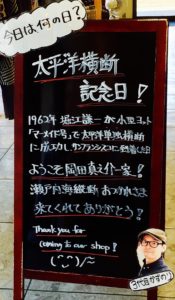 今日は何の日?
太平洋横断
記念日!
1962年 堀江謙一が小型ヨット
「マーメイド号」で太平洋単独横断
に成功し サンフランシスコに到着した日
ようこそ 岡田真之介一家!
瀬戸内海縦断 おつかれさま
来てくれて ありがとう!
Thank you for
coming to our shop!
3代目かずのり